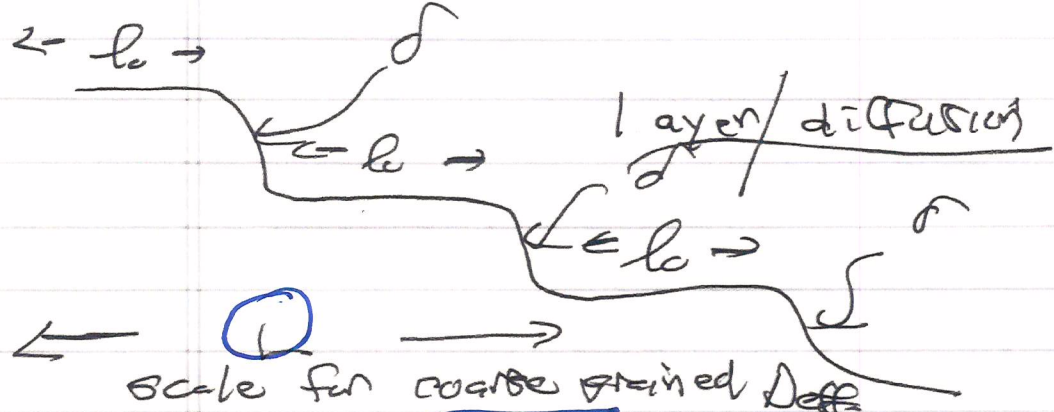 ← l₀ → δ
← l₀ →
layer / diffusion
δ
← l₀ → δ
← L →
scale for coarse grained Deff